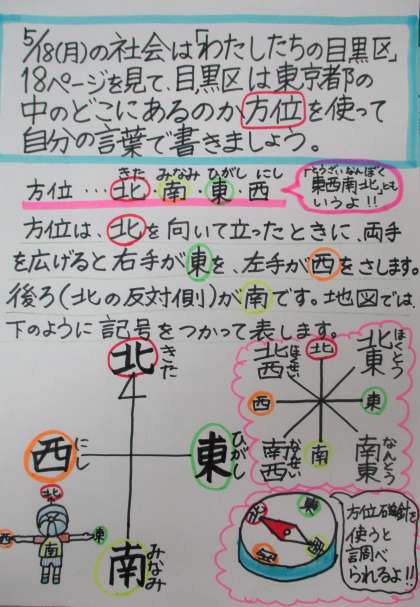 5/18(月)の社会は「わたしたちの目黒区」
18ページを見て、目黒区は東京都の
中のどこにあるのか方位を使って
自分の言葉で書きましょう。
きた みなみ ひがし にし
方位…北・南・東・西
「とうざいなんぼく
東西南北」とも
いうよ!!
方位は、北を向いて立ったときに、両手
を広げると右手が東を、左手が西をさします。
後ろ(北の反対側)が南です。地図では、
下のように記号をつかって表します。
北 きた
西 にし
東 ひがし
南 みなみ
北
西
東
南
北西 ほくせい
北
北東 ほくとう
西
東
南西 なんせい
南
南東 なんとう
方位磁針を
使うと
調べ
られるよ!!